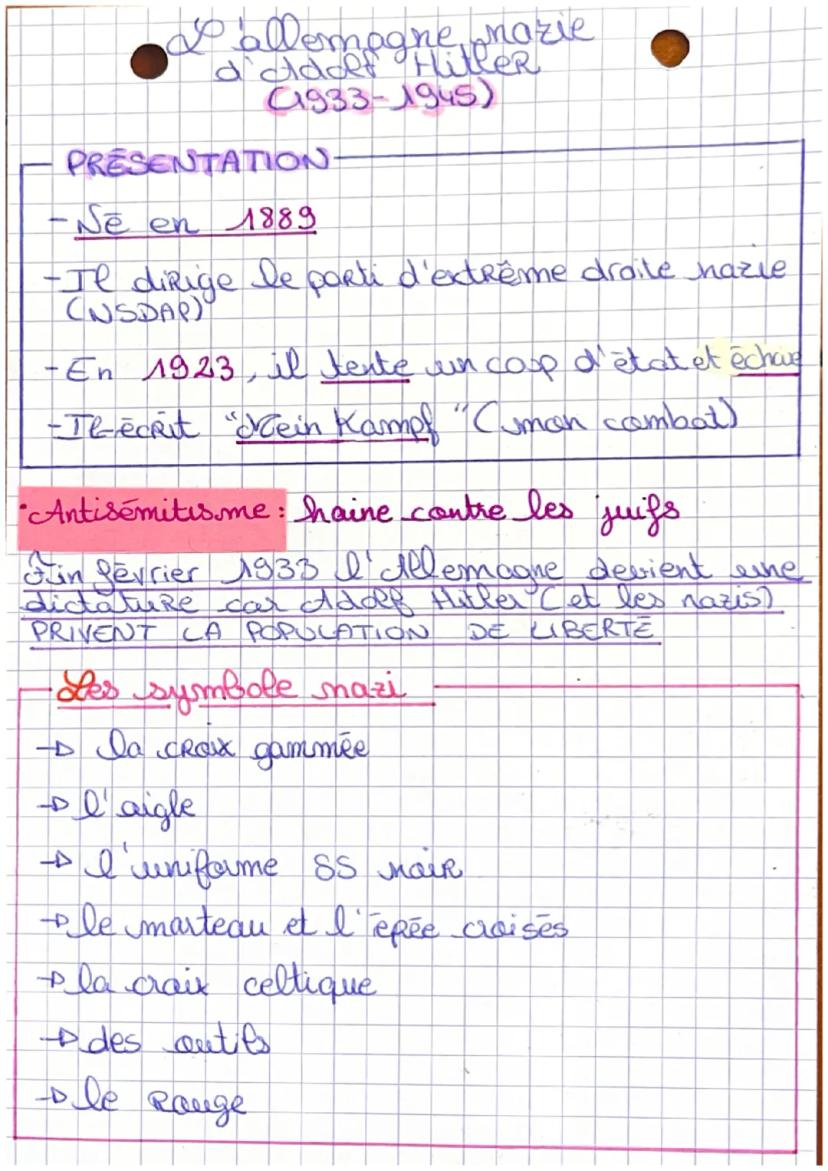 L'allemagne nazie
d'Adolf Hitler
(1933-1945)
PRÉSENTATION
- Né en 1889
- Il dirige le parti d'extrême droite nazie
(NSDAP)
- En 1923, il tente un coup d'état et échoue
- Il écrit "Mein Kampf" (mon combat)
• Antisémitisme : haine contre les juifs
Fin février 1933 l'Allemagne devient une
dictature car Adolf Hitler (et les nazis)
PRIVENT LA POPULATION DE LIBERTÉ
Les symbole nazi
→ la croix gammée
→ l'aigle
→ l'uniforme SS noir
→ le marteau et l'épée croisés
→ la croix celtique
→ des outils
→ le rouge